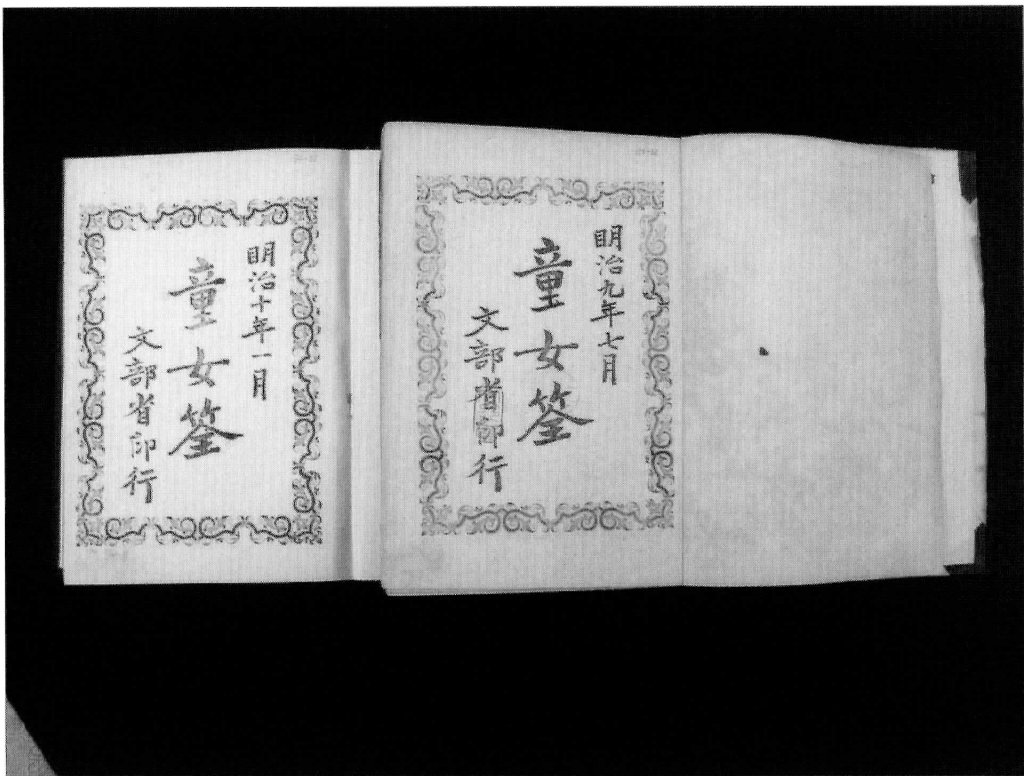 明治九年七月
童女筌
文部省印行
明治十年一月
童女筌
文部省印行